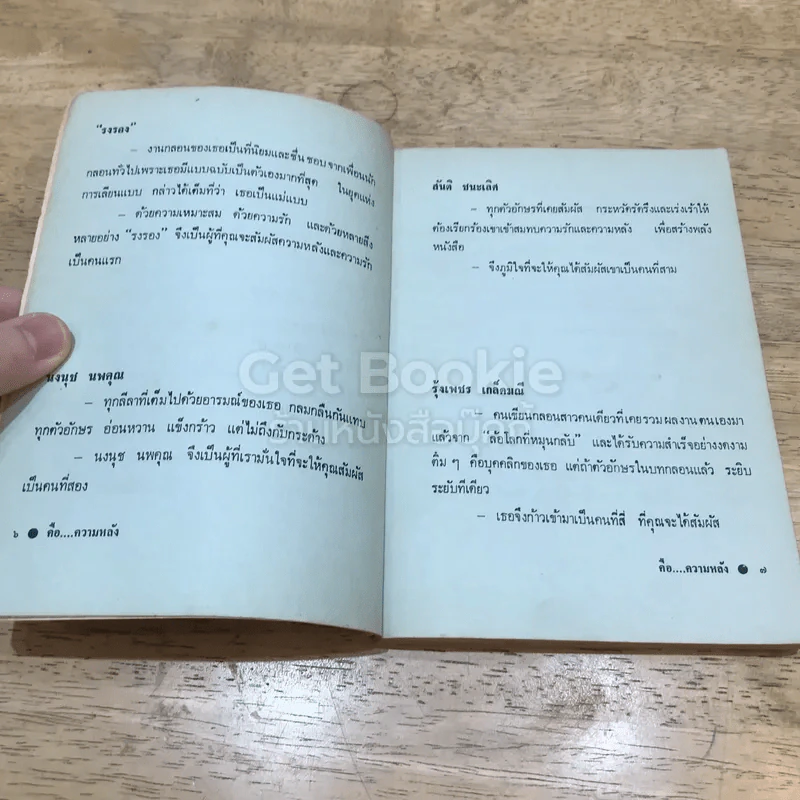 "รงรอง"
– งานกลอนของเธอเป็นที่นิยมและชื่นชอบ จากเพื่อนนัก
กลอนทั่วไปเพราะเธอมีแบบฉบับเป็นตัวเองมากที่สุด ในยุคแห่ง
การเลียนแบบ กล่าวได้เต็มที่ว่า เธอเป็นแม่แบบ
– ด้วยความเหมาะสม ด้วยความรัก และด้วยหลายสิ่ง
หลายอย่าง "รงรอง" จึงเป็นผู้ที่คุณจะสัมผัสความหลังและความรัก
เป็นคนแรก
นงนุช นพคุณ
– ทุกลีลาที่เต็มไปด้วยอารมณ์ของเธอ กลมกลืนกันแทบ
ทุกตัวอักษร อ่อนหวาน แข็งกร้าว แต่ไม่ถึงกับกระด้าง
– นงนุช นพคุณ จึงเป็นผู้ที่เรามั่นใจที่จะให้คุณสัมผัส
เป็นคนที่สอง
๖ ● คือ....ความหลัง
สันติ ชนะเลิศ
– ทุกตัวอักษรที่เคยสัมผัส กระหวัดรัดรึงและเร่งเร้าให้
ต้องเรียกร้องเขาเข้าสมทบความรักและความหลัง เพื่อสร้างพลัง
หนังสือ
– จึงภูมิใจที่จะให้คุณได้สัมผัสเขาเป็นคนที่สาม
รุ้งเพชร เกล็ดมณี
– คนเขียนกลอนสาวคนเดียวที่เคยรวมผลงานตนเองมา
แล้วจาก "ล้อโลกที่หมุนกลับ" และได้รับความสำเร็จอย่างงดงาม
ติ๋ม ๆ คือบุคคลิกของเธอ แต่ถ้าตัวอักษรในบทกลอนแล้ว ระยิบ
ระยับทีเดียว
– เธอจึงก้าวเข้ามาเป็นคนที่สี่ ที่คุณจะได้สัมผัส
คือ....ความหลัง ● ๗
Get Bookie
ร้านหนังสือบุ๊คกี้